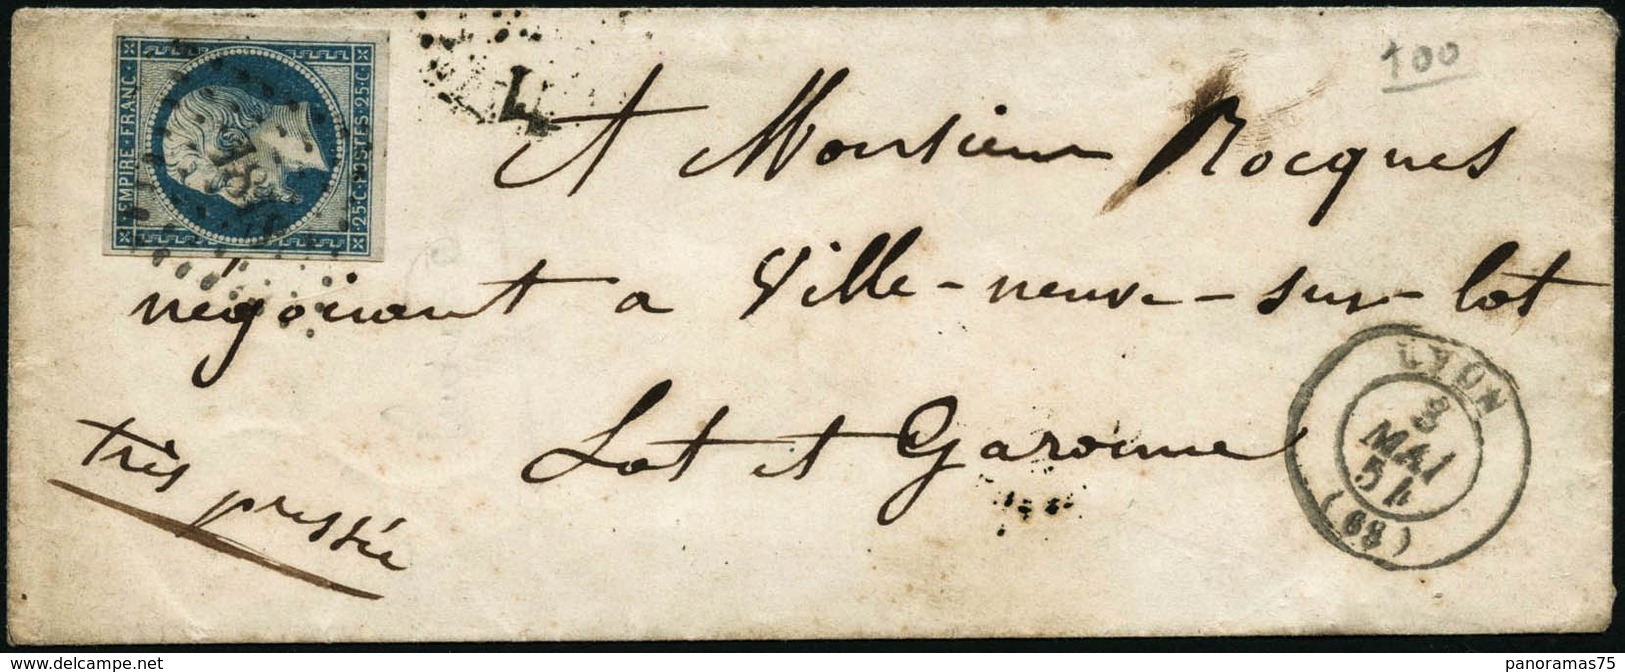 EMPIRE · FRANC ·
25 · C · POSTES · 25 · C ·
100
A Monsieur Rocques
négociant a Ville-neuve-sur-lot
Lot et Garonne
très
pressée
LYON
8
MAI
54
(68)
delcampe.net
panoramas75